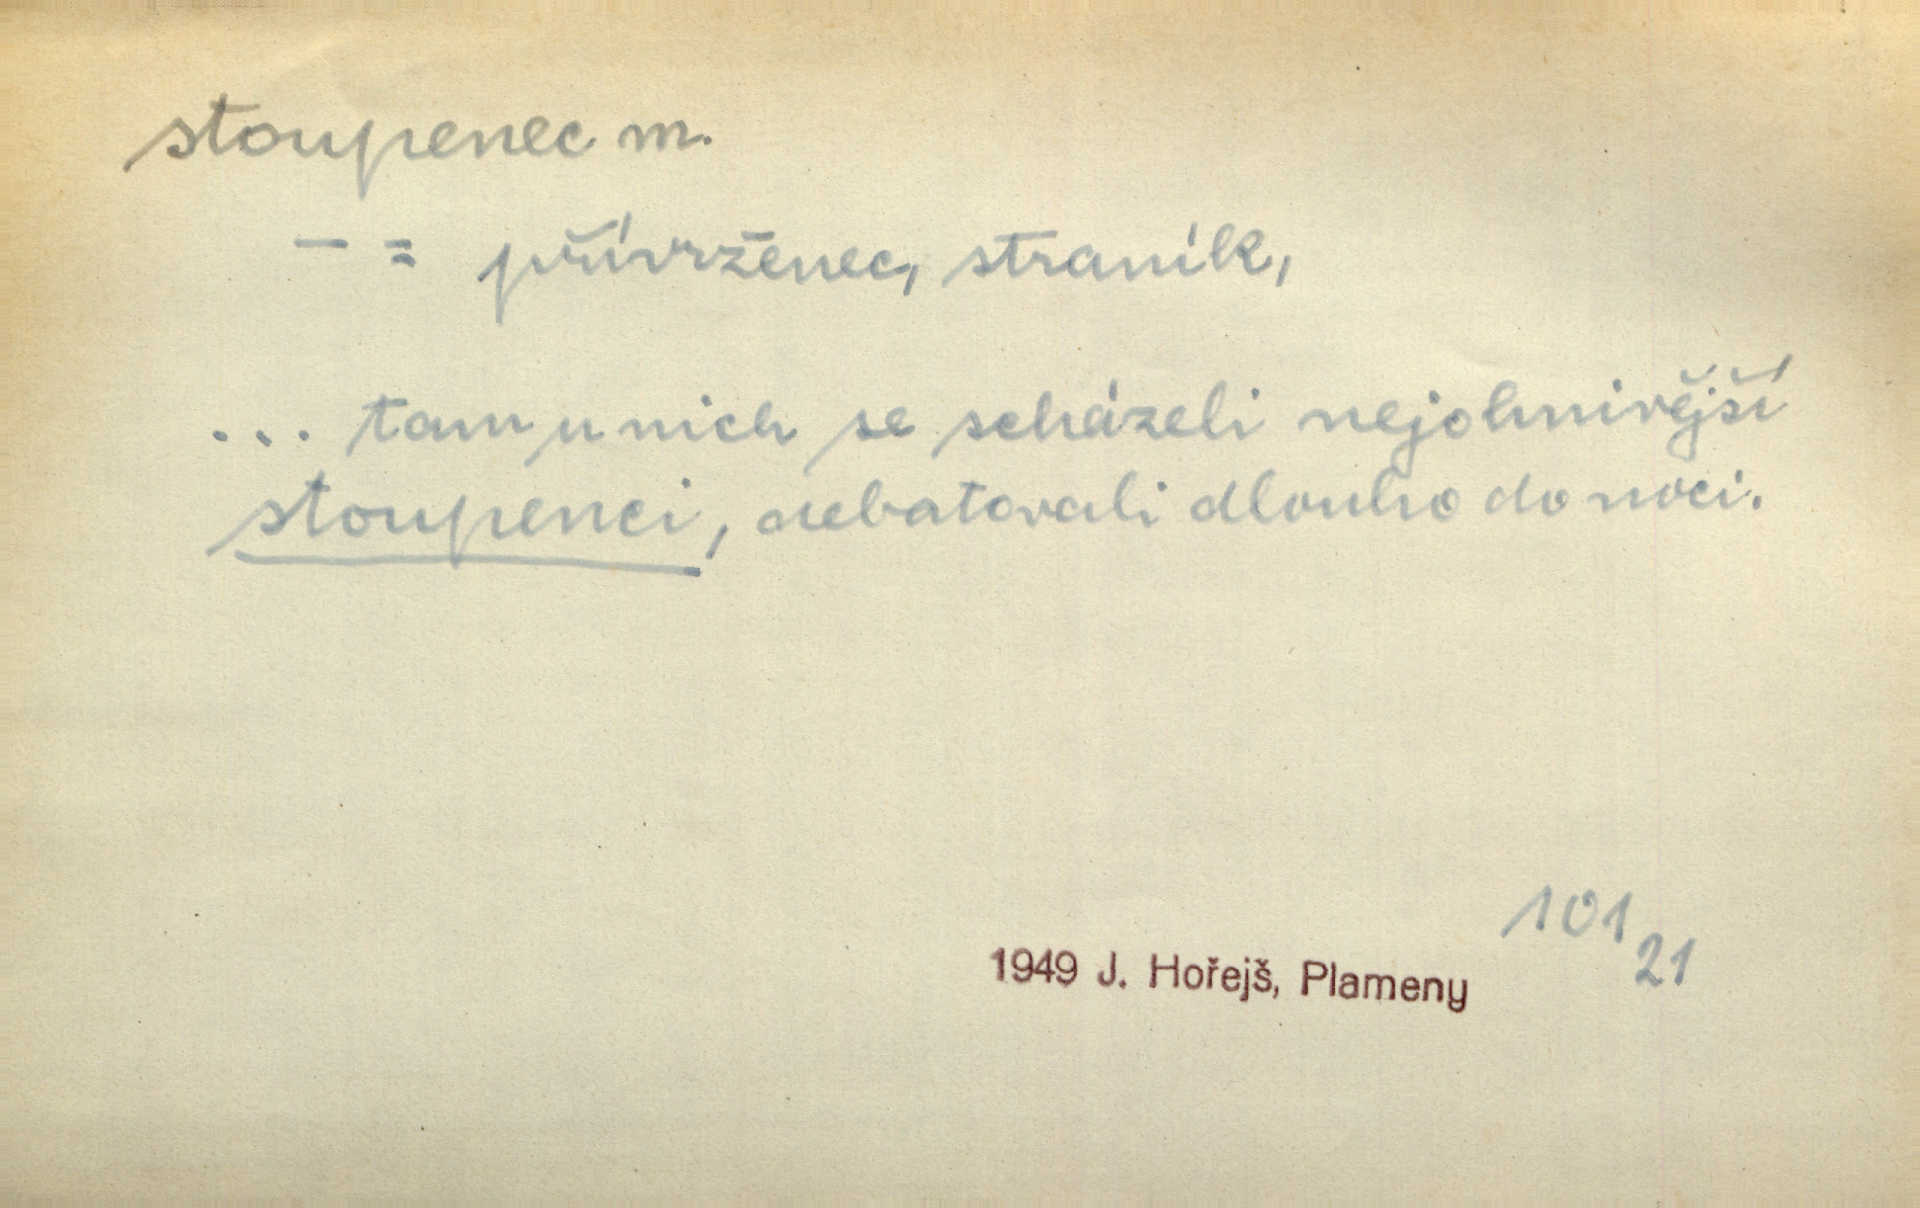 stoupenec m.
– = přívrženec, straník,
... tam u nich se scházeli nejohnivější
stoupenci, debatovali dlouho do noci.
101
21
1949 J. Hořejš, Plameny